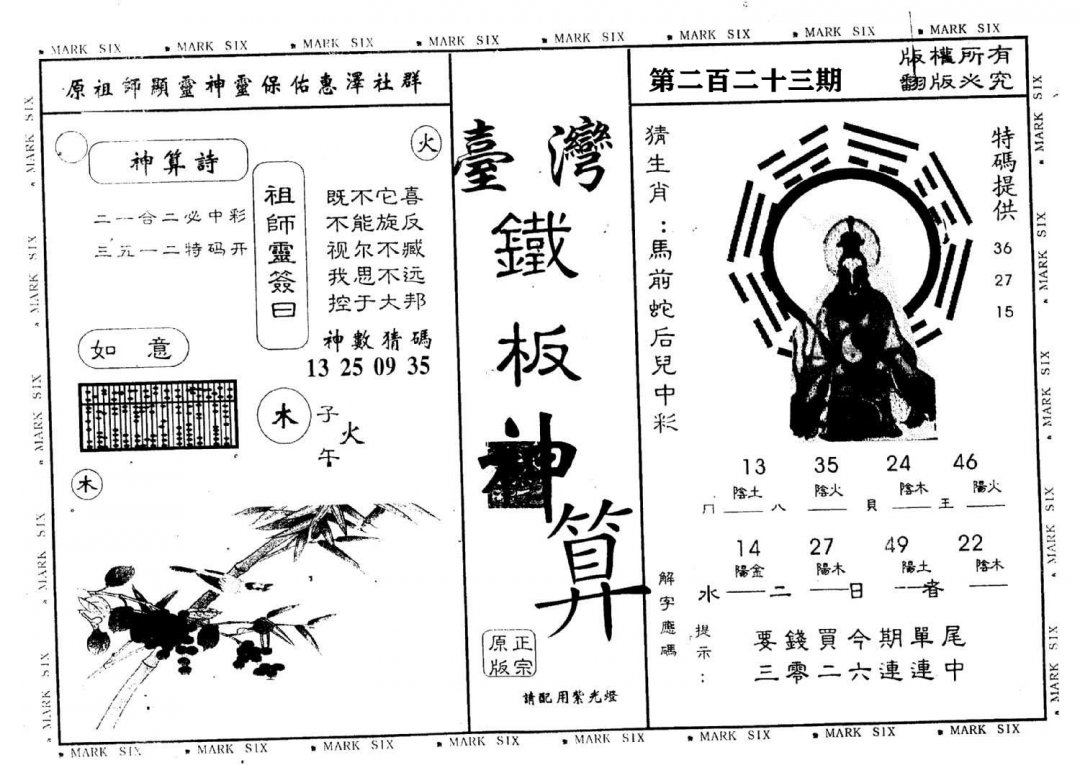 MARK SIX MARK SIX MARK SIX MARK SIX MARK SIX MARK SIX MARK SIX MARK SIX
原祖師顯靈神靈保佑惠澤社群
火
神算詩
二一合二必中彩
三五一二特码开
祖師靈簽曰
既不它喜
不能旋反
视尔不臧
我思不远
控于大邦
神數猜碼
13 25 09 35
如意
木
子
火
午
木
臺灣
鐵
板
神
算
正宗
原版
請配用紫光燈
第二百二十三期
版權所有
翻版必究
猜生肖：馬前蛇后兒中彩
特碼提供
36
27
15
13 35 24 46
陰土 陰火 陰木 陽火
冂 八 貝 王
14 27 49 22
陽金 陽木 陽土 陰木
水 二 日 者
解字應碼
提示：
要錢買今期單尾
三零二六連連中
MARK SIX MARK SIX MARK SIX MARK SIX MARK SIX MARK SIX MARK SIX MARK SIX
MARK SIX MARK SIX MARK SIX MARK SIX MARK SIX
MARK SIX MARK SIX MARK SIX MARK SIX MARK SIX